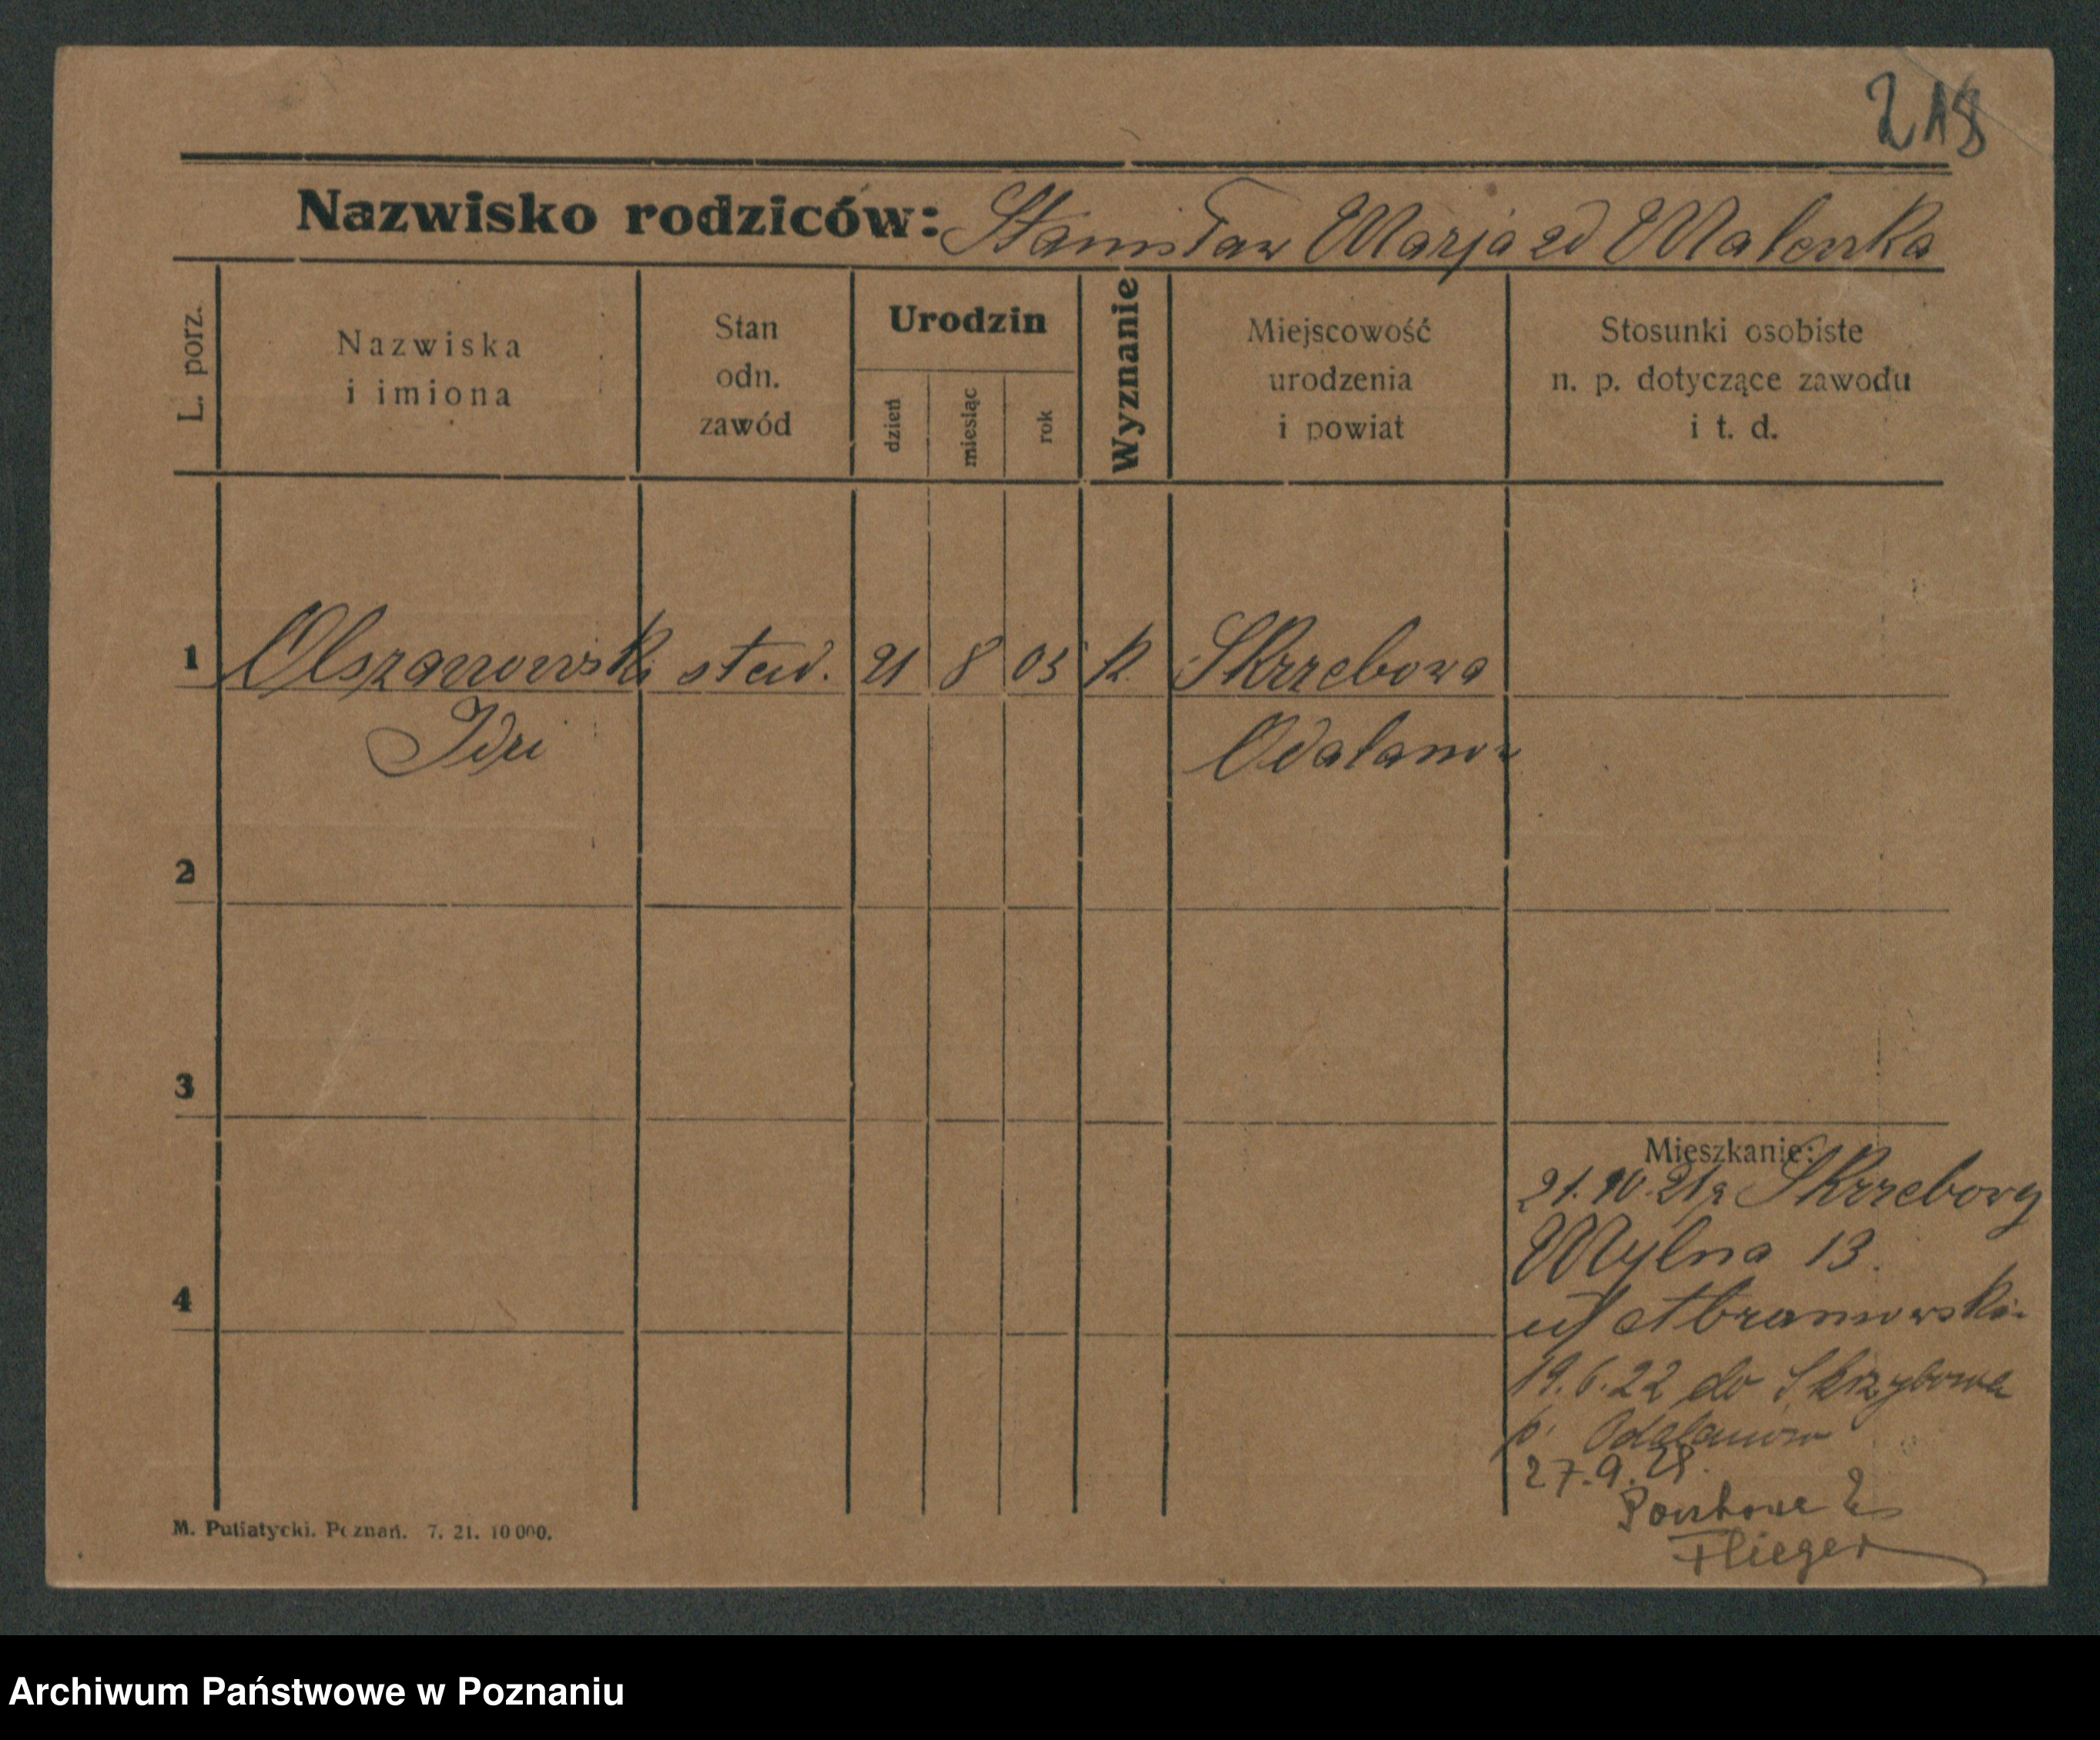 218
Nazwisko rodziców: Stanisław Marja zd Malenka
L. porz.
Nazwiska i imiona
Stan odn. zawód
Urodzin
dzień
miesiąc
rok
Wyznanie
Miejscowość urodzenia i powiat
Stosunki osobiste n. p. dotyczące zawodu i t. d.
1 Olszanowski stud. 21 8 05 k. Skrzebowa
Idzi Odalanów
2
3
Mieszkanie:
21.10.21 z Skrzebowy
Mylna 13.
4
u/ Abramowski
19.6.22 do Skrzybowa
p. Odalanów
27.9.
Flieger
M. Putiatycki. Poznań. 7. 21. 10 000.
Archiwum Państwowe w Poznaniu